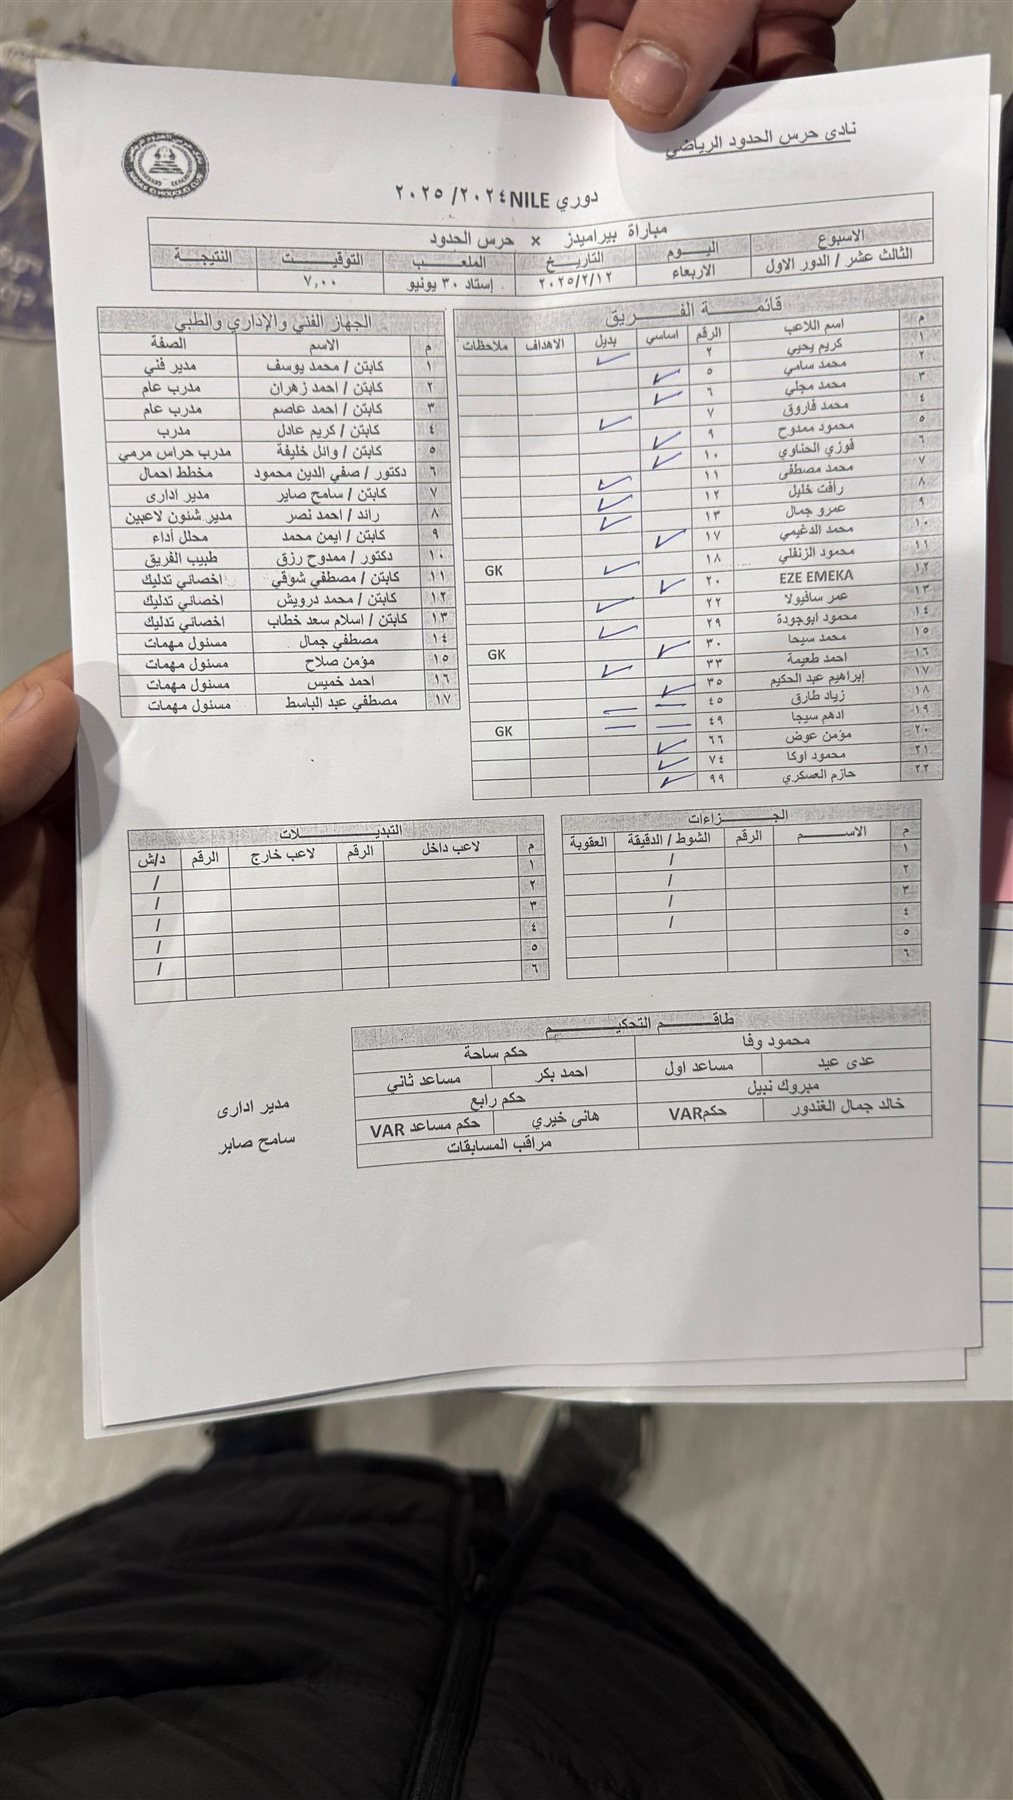 نادى حرس الحدود الرياضي
دوري NILE ٢٠٢٤/ ٢٠٢٥
مباراة بيراميدز × حرس الحدود
الاسبوع اليـــوم التاريـــخ الملعـــب التوقيـــت النتيجـــة
الثالث عشر / الدور الاول الاربعاء ٢٠٢٥/٢/١٢ إستاد ٣٠ يونيو ٧,٠٠
قائمـــــة الفـــــريق
م اسم اللاعب الرقم اساسي بديل الاهداف ملاحظات
١ كريم يحيي ٢
٢ محمد سامي ٥
٣ محمد مجلي ٦
٤ محمد فاروق ٧
٥ محمود ممدوح ٩
٦ فوزي الحناوي ١٠
٧ محمد مصطفى ١١
٨ رأفت خليل ١٢
٩ عمرو جمال ١٣
١٠ محمد الدغيمي ١٧
١١ محمود الزنفلي ١٨ GK
١٢ EZE EMEKA ٢٠
١٣ عمر سافيولا ٢٢
١٤ محمود ابوجودة ٢٩
١٥ محمد سيحا ٣٠ GK
١٦ احمد طعيمة ٣٣
١٧ إبراهيم عبد الحكيم ٣٥
١٨ زياد طارق ٤٥
١٩ ادهم سيجا ٤٩ GK
٢٠ مؤمن عوض ٦٦
٢١ محمود اوكا ٧٤
٢٢ حازم العسكري ٩٩
الجهاز الفني والإداري والطبي
م الاسم الصفة
١ كابتن / محمد يوسف مدير فني
٢ كابتن / احمد زهران مدرب عام
٣ كابتن / احمد عاصم مدرب عام
٤ كابتن / كريم عادل مدرب
٥ كابتن / وائل خليفة مدرب حراس مرمي
٦ دكتور / صفي الدين محمود مخطط احمال
٧ كابتن / سامح صابر مدير ادارى
٨ رائد / احمد نصر مدير شئون لاعبين
٩ كابتن / ايمن محمد محلل أداء
١٠ دكتور / ممدوح رزق طبيب الفريق
١١ كابتن / مصطفي شوقي اخصائي تدليك
١٢ كابتن / محمد درويش اخصائي تدليك
١٣ كابتن / اسلام سعد خطاب اخصائي تدليك
١٤ مصطفي جمال مسئول مهمات
١٥ مؤمن صلاح مسئول مهمات
١٦ احمد خميس مسئول مهمات
١٧ مصطفي عبد الباسط مسئول مهمات
الجـــــــزاءات
م الاســـــم الرقم الشوط / الدقيقة العقوبة
١ /
٢ /
٣ /
٤ /
٥
٦
التبديـــــــلات
م لاعب داخل الرقم لاعب خارج الرقم د/ش
١ /
٢ /
٣ /
٤ /
٥ /
٦
طاقـــــم التحكيـــــم
محمود وفا حكم ساحة
عدى عيد مساعد اول احمد بكر مساعد ثاني
مبروك نبيل حكم رابع
خالد جمال الغندور حكم VAR هانى خيري حكم مساعد VAR
مراقب المسابقات
مدير ادارى
سامح صابر